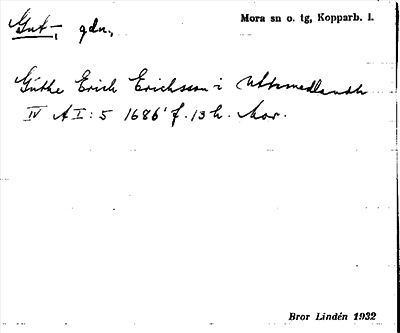 Gut-, gdn.,
Mora sn o. tg, Kopparb. l.
Gúthe Erich Erichsson i Uttmedlandh
IV A I: 5 1686 f. 13 h. Mor.
Bror Lindén 1932